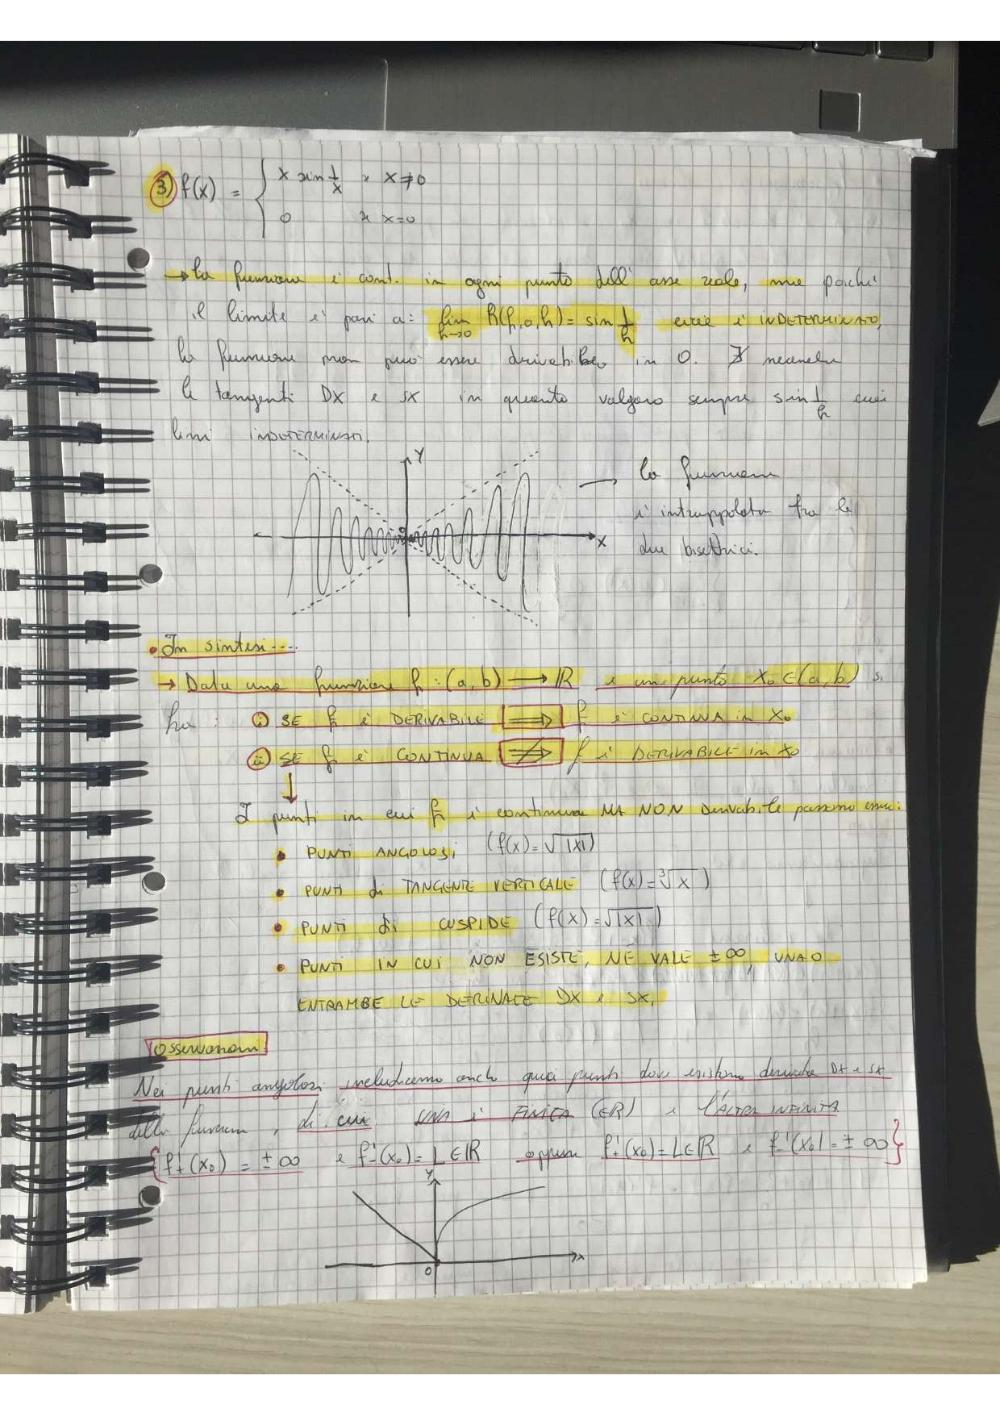 3) f(x) = { x sin 1/x se x≠0
0 se x=0
→ la funzione è cont. in ogni punto dell' asse reale, ma poiché
il limite è pari a: lim h→0 R(f,0,h) = sin 1/h cioè è INDETERMINATO,
la funzione non può essere derivabile in 0. ∄ neanche
le tangenti DX e SX in quanto valgono sempre sin 1/h cioè
limi INDETERMINATI.
Y
la funzione
è intrappolata fra le
X
due bisettrici.
• In sintesi...
→ Data una funzione f: (a, b) → ℝ e un punto x₀ ∈ (a, b) si
ha: i) SE f è DERIVABILE ⇒ f è CONTINUA in x₀
ii) SE f è CONTINUA ⇏ f è DERIVABILE in x₀
↓
I punti in cui f è continua MA NON derivabile possono essere:
• PUNTI ANGOLOSI (f(x) = √|x|)
• PUNTI di TANGENTE VERTICALE (f(x) = ∛x)
• PUNTI di CUSPIDE (f(x) = √|x|)
• PUNTI IN CUI NON ESISTE, NÉ VALE ±∞, UNA O
ENTRAMBE LE DERIVATE DX e SX.
Osservazioni
Nei punti angolosi includiamo anche quei punti dove esistono derivate DX e SX
della funzione, di cui UNA è FINITA (∈ℝ) e l'ALTRA INFINITA
{f'₊(x₀) = ±∞ e f'₋(x₀) = L ∈ ℝ oppure f'₊(x₀) = L ∈ ℝ e f'₋(x₀) = ±∞}
Y
0
X